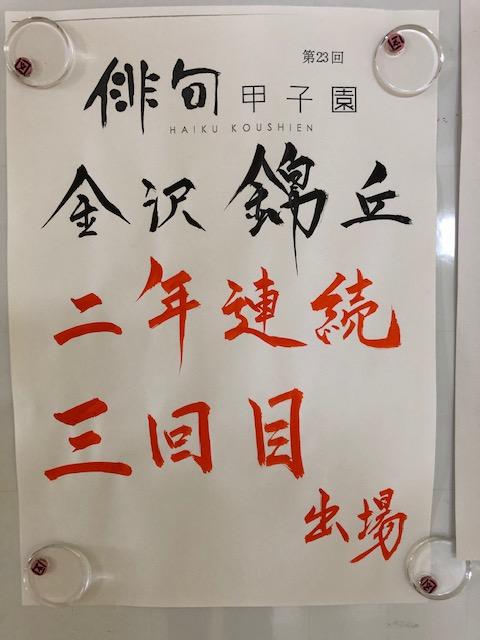 第23回
俳句甲子園
HAIKU KOUSHIEN
金沢錦丘
二年連続
三回目
出場